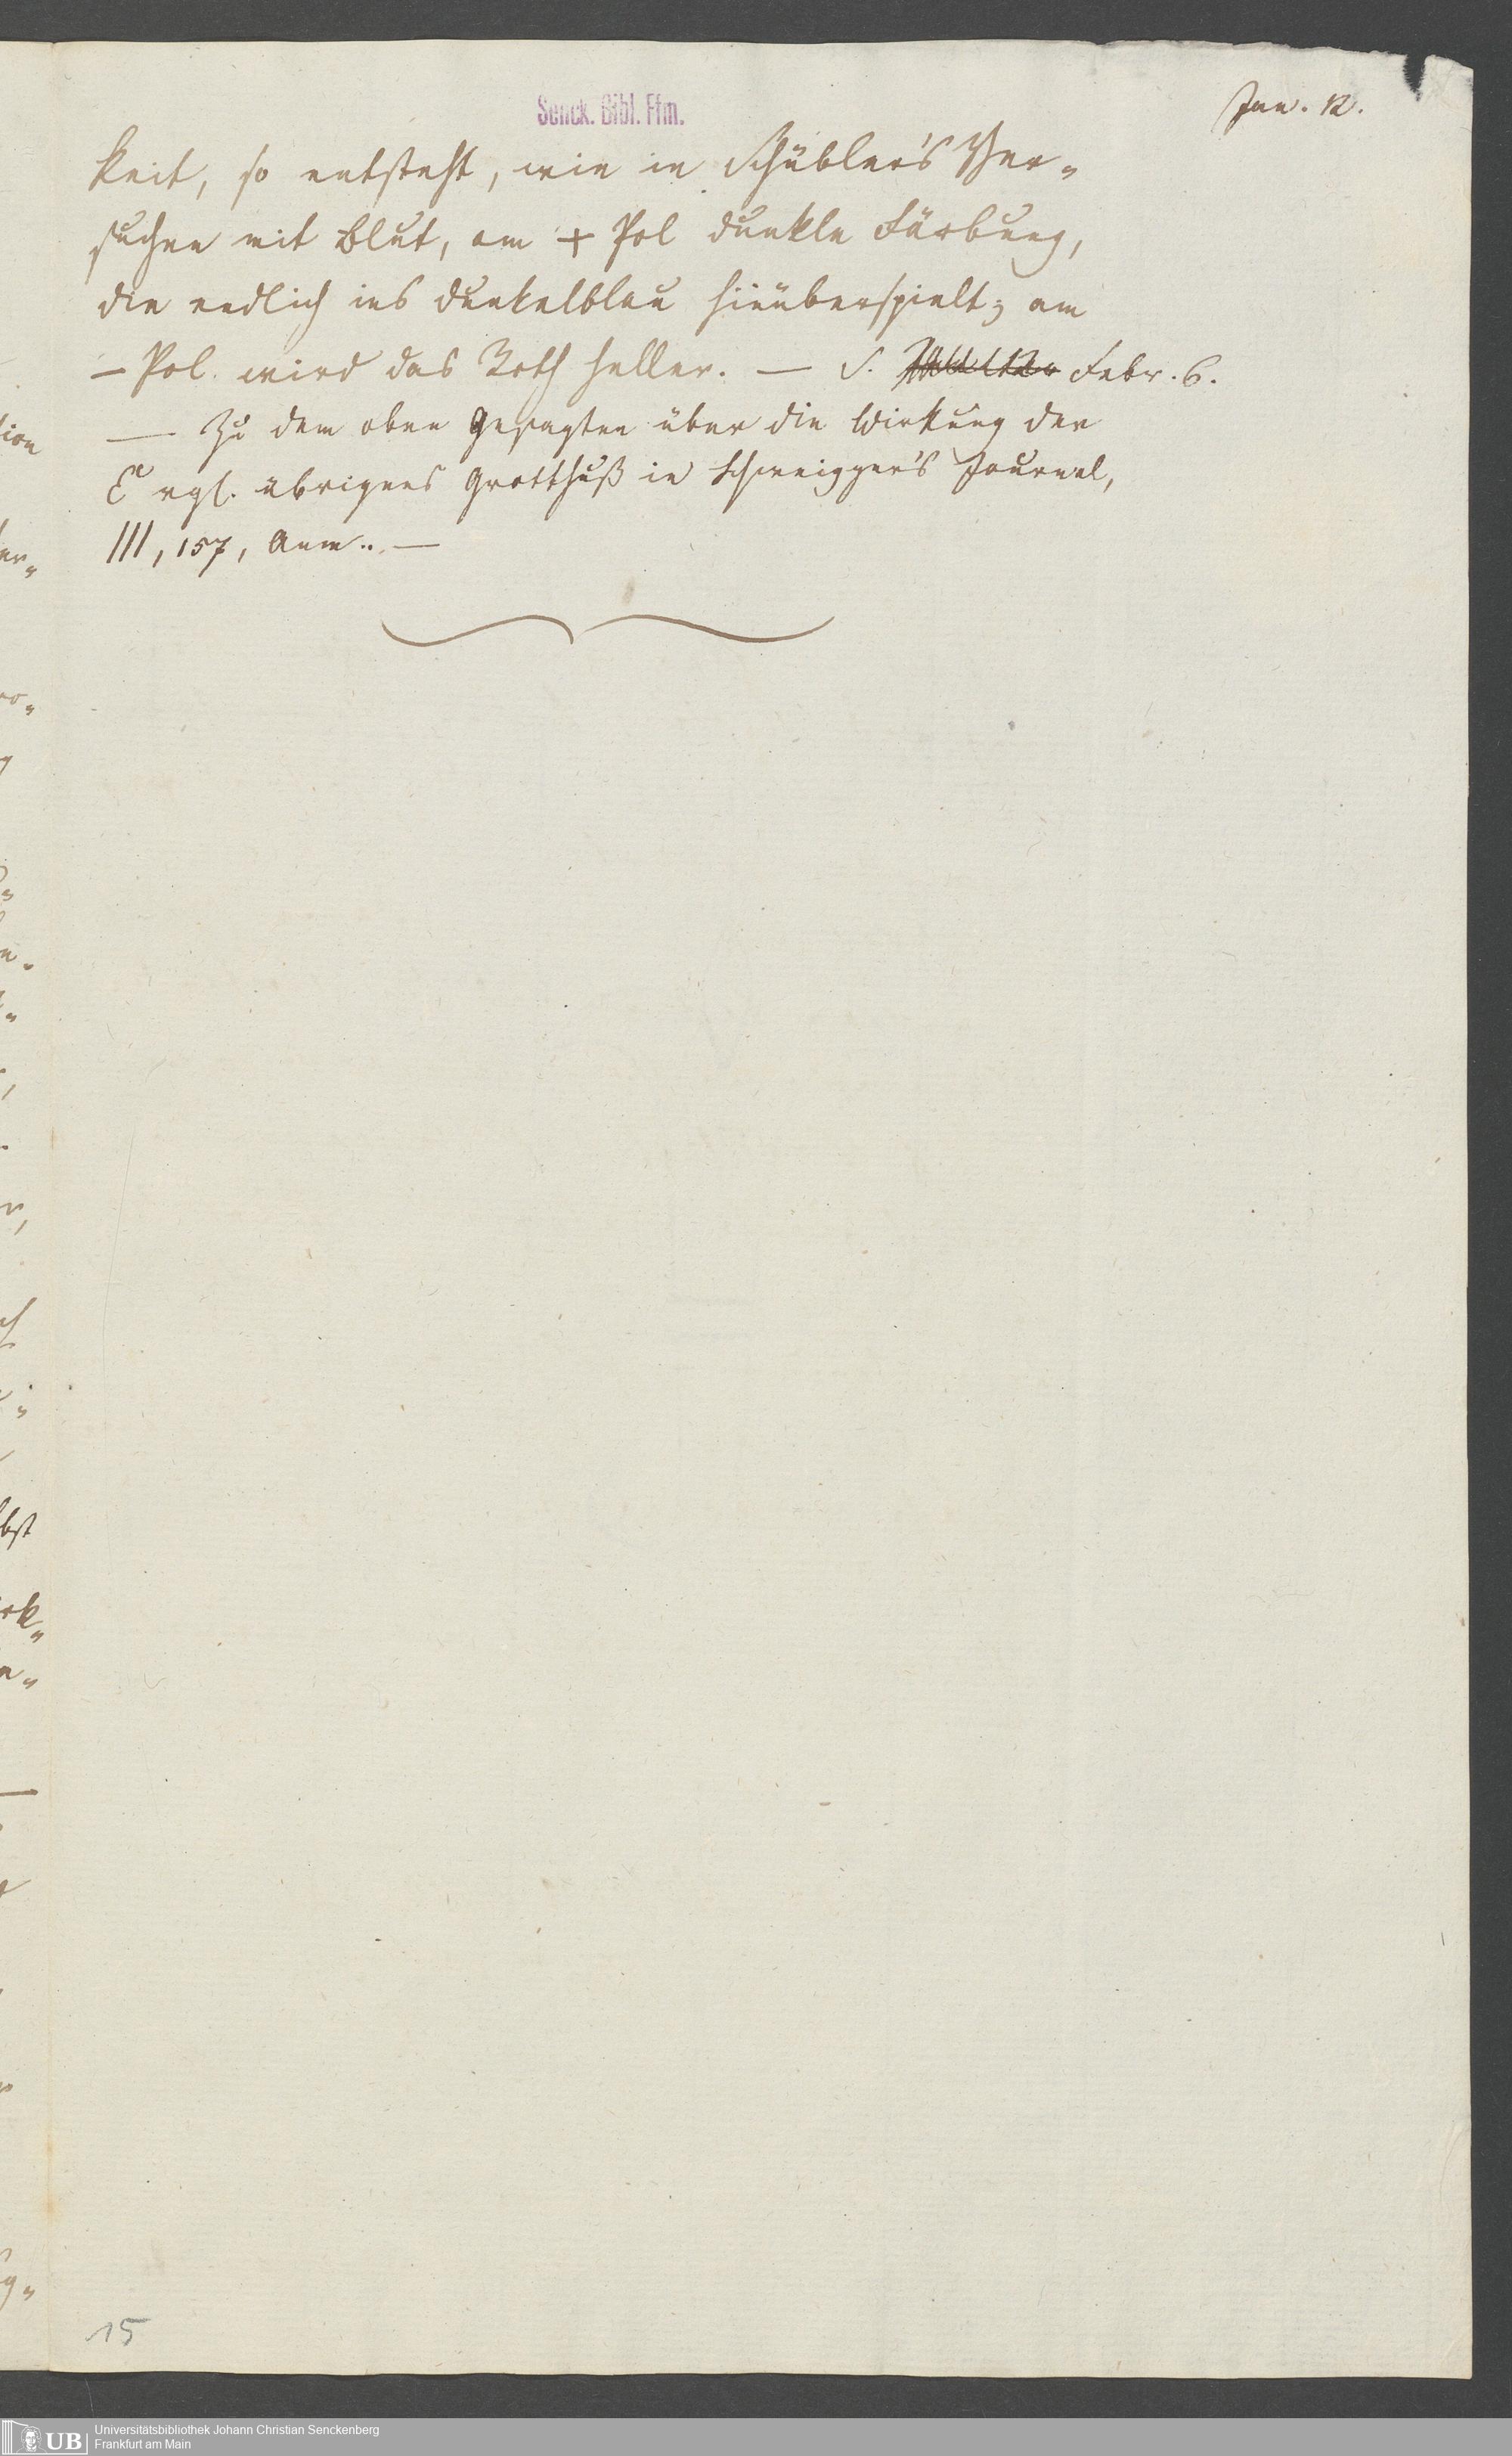 Senck. Bibl. Ffm.
Jan. 12.
keit, so entsteht, wie in Schübler's Ver-
suchen mit Blut, am + Pol dunkle Färbung,
die endlich ins Dunkelblau hinüberspielt; am
– Pol wird das Roth heller. — S. Febr. 6.
— Zu dem oben Gesagten über die Wirkung der
E vgl. übrigens Grotthuß in Schweigger's Journal,
III, 157, Anm.. —
tion
er-
ro-
g
n.
r,
ch
bst
rk-
n-
g-
15
UB
Universitätsbibliothek Johann Christian Senckenberg
Frankfurt am Main